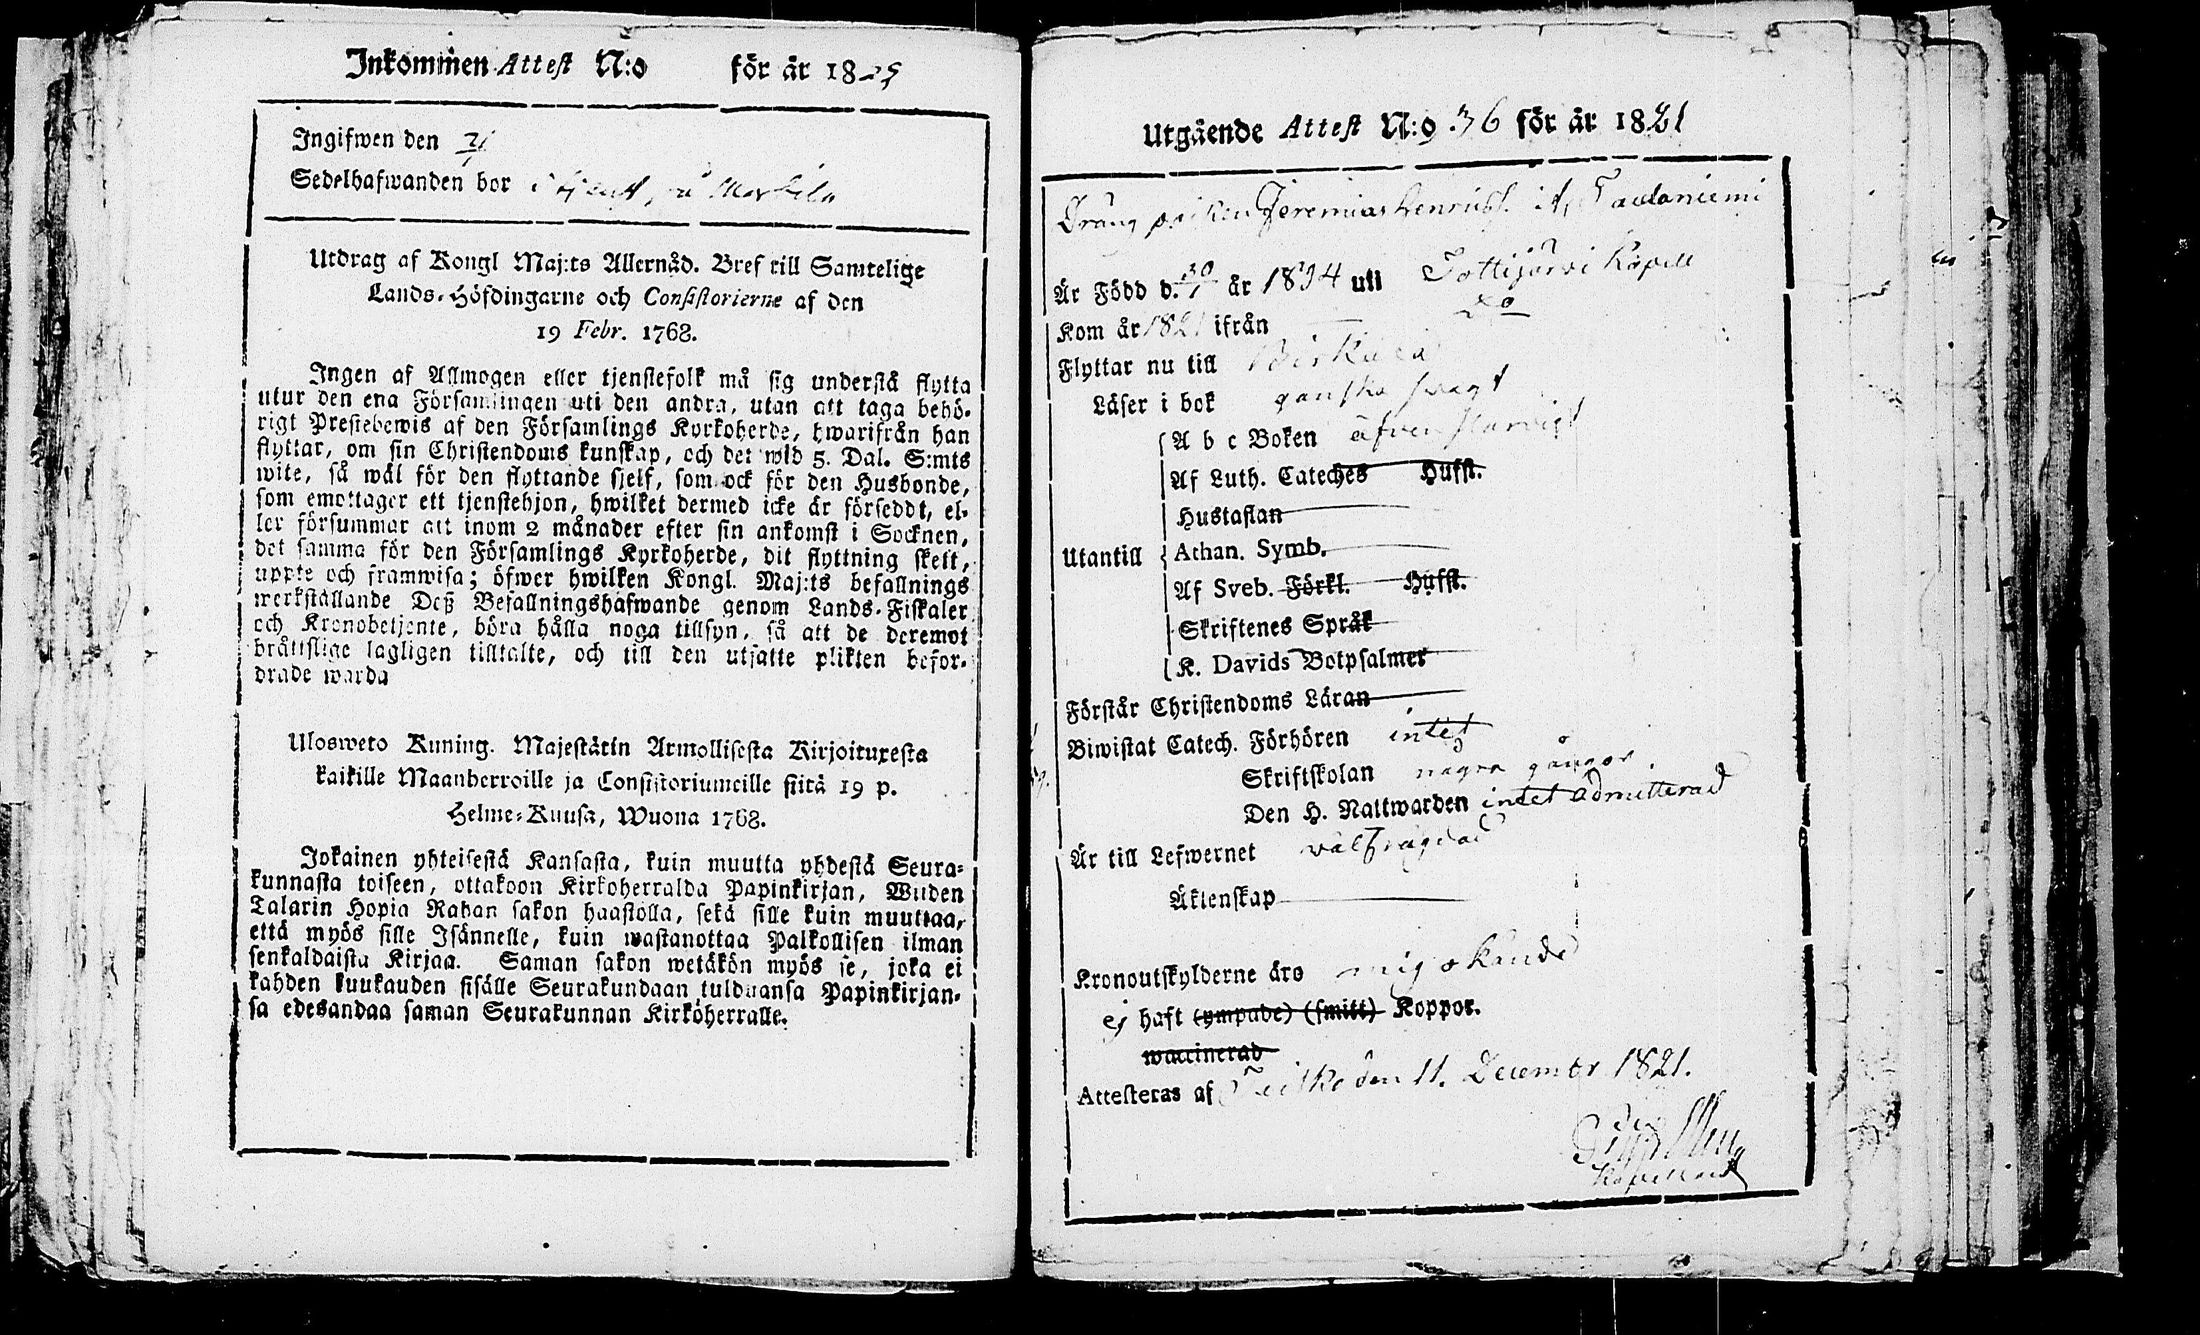 Inkommen Attest N:o för år 18
Ingifwen den
Sedelhafwanden bor i tjenst på
Utdrag af Kongl Maj:ts Allernåd. Bref till Samtelige
Lands-Höfdingarne och Consistorierne af den
19 Febr. 1768.
Ingen af Allmogen eller tjenstefolk må sig understå flytta
utur den ena Församlingen uti den andra, utan att taga behö-
rigt Prestebewis af den Församlings Kyrkoherde, hwarifrån han
flyttar, om sin Christendoms kunskap, och det wid 5. Dal. S:mts
wite, så wäl för den flyttande sjelf, som ock för den Husbonde,
som emottager ett tjenstehjon, hwilket dermed icke är försedt, el-
ler försummar att inom 2 månader efter sin ankomst i Socknen,
det samma för den Församlings Kyrkoherde, dit flyttning skett,
uppte och framwisa; öfwer hwilken Kongl. Maj:ts befallnings
werkställande Deß Befallningshafwande genom Lands-Fiskaler
och Kronobetjente, böra hålla noga tillsyn, så att de deremot
bråttslige lagligen tilltalte, och till den utsatte plikten befor-
drade warda
Ulosweto Kuning. Majestätin Armollisesta Kirjoituxesta
kaikille Maanherroille ja Consistoriumeille siitä 19 p.
Helme-Kuusa, Wuona 1768.
Jokainen yhteisestä Kansasta, kuin muutta yhdestä Seura-
kunnasta toiseen, ottakoon Kirkoherralda Papinkirjan, Wiiden
Talarin Hopia Rahan sakon haastolla, sekä sille kuin muuttaa,
että myös sille Isännelle, kuin wastanottaa Palkollisen ilman
senkaldaista Kirjaa. Saman sakon wetäkön myös se, joka ei
kahden kuukauden sisälle Seurakundaan tulduansa Papinkirjan-
sa edesandaa saman Seurakunnan Kirköherralle.
Utgående Attest N:o 36 för år 1821
Dräng poiken Jeremias Henricss. ifr. Taulaniemi
Är Född d. 30/1 år 1804 uti Tottijärvi Kapell
Kom år 1821 ifrån do
Flyttar nu till Birkala
Läser i bok ganska swagt
A b c Boken äfven slarvigt
Af Luth. Cateches Hufst.
Hustaflan
Utantill Athan. Symb.
Af Sveb. Förkl. Hufst.
Skriftenes Språk
K. Davids Botpsalmer
Förstår Christendoms Läran
Biwistat Catech. Förhören intet
Skriftskolan några gånger.
Den H. Nattwarden intet admitterad
Är till Lefwernet välfrägdad
Äktenskap
Kronoutskylderne äro mig okände
ej haft (ympade) (smitt) Koppor.
waccinerad
Attesteras af den 11. December 1821.
Kapellan